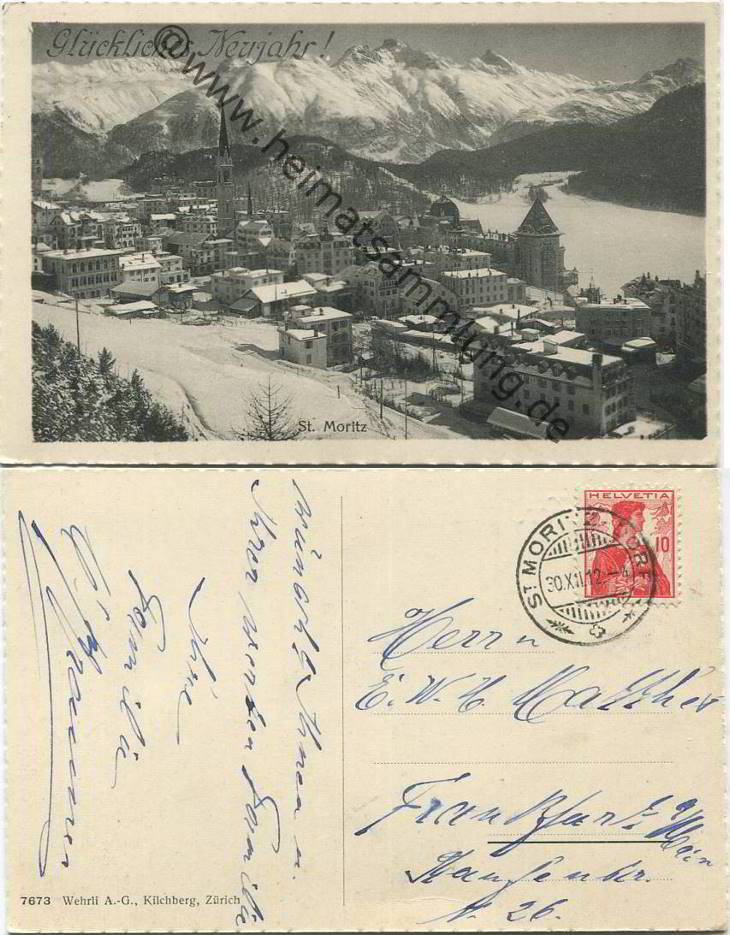 Glückliches Neujahr!
@www.heimatsammlung.de
St. Moritz
wünscht Ihnen u.
Ihrer werten Familie
Ihre
Familie
HELVETIA
10
ST. MORITZ DORF
30.XII.12
Herrn
E. W. H. Matthes
Frankfurt a/Main
N. 26.
7673 Wehrli A.-G., Kilchberg, Zürich